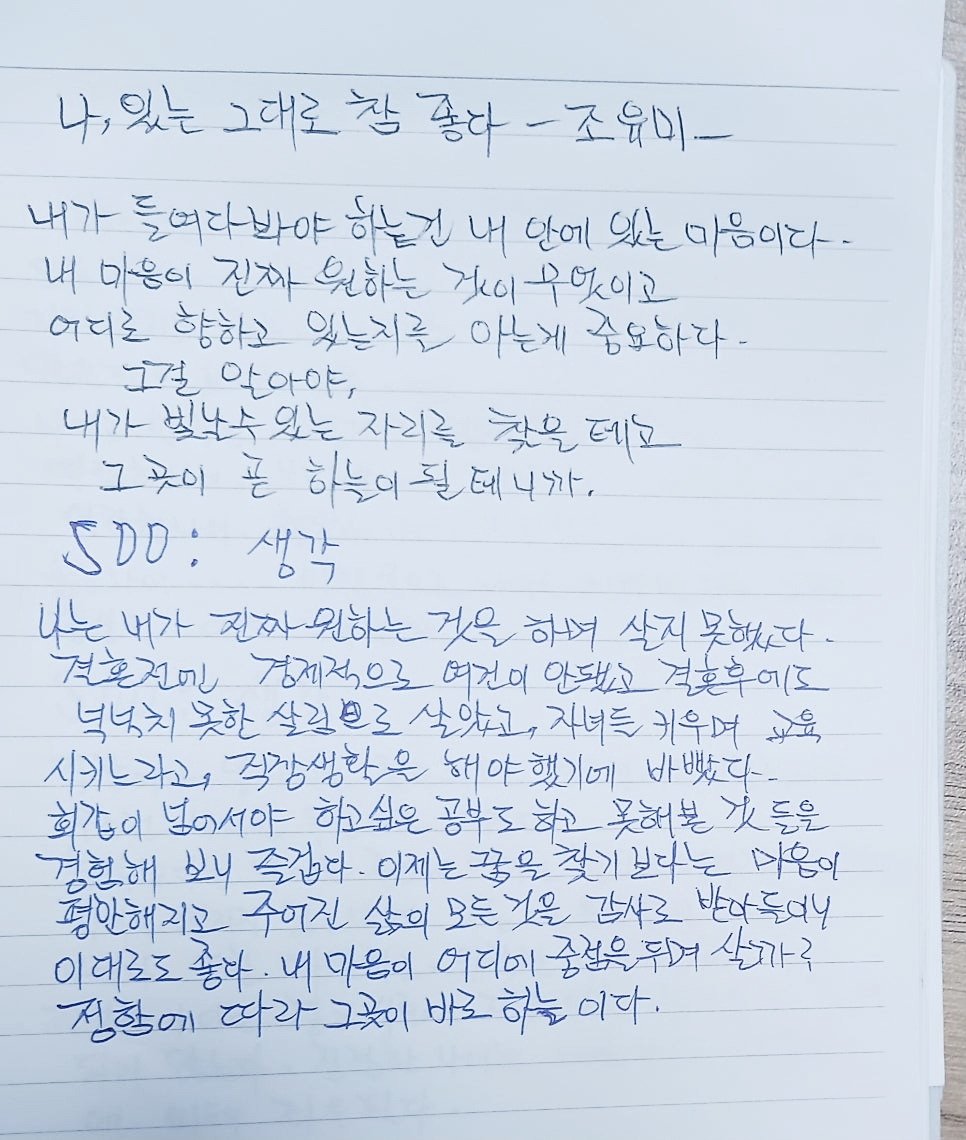 나, 있는 그대로 참 좋다 - 조유미 -
내가 들여다봐야 하는건 내 안에 있는 마음이다.
내 마음이 진짜 원하는 것이 무엇이고
어디로 향하고 있는지를 아는게 중요하다.
그걸 알아야,
내가 빛날수 있는 자리를 찾을 테고
그 곳이 곧 하늘이 될 테니까.
SDD : 생각
나는 내가 진짜 원하는 것을 하며 살지 못했다.
결혼전엔 경제적으로 여건이 안됐고 결혼후에도
넉넉치 못한 살림으로 살았고, 자녀들 키우며 교육
시키느라고, 직장생활은 해야했기에 바빴다.
회갑이 넘어서야 하고싶은 공부도 하고 못해본 것 들을
경험해 보니 즐겁다. 이제는 꿈을 찾기 보다는 마음이
평안해지고 주어진 삶의 모든 것을 감사로 받아들이니
이대로도 좋다. 내 마음이 어디에 중점을 두며 살까를
정함에 따라 그곳이 바로 하늘 이다.